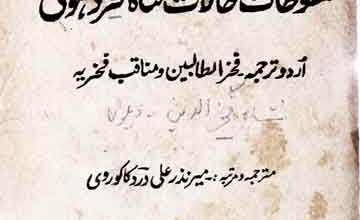 ملفوظات و حالات شاہ فخر دہلوی
اُردو ترجمہ۔ فخر الطالبین و مناقب فخریہ
شاہ فخر الدین - دہلوی
مترجمہ و مرتبہ :۔ میر نذر علی درد کاکوروی